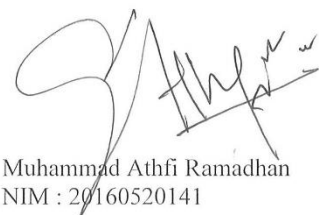 Muhammad Athfi Ramadhan
NIM : 20160520141